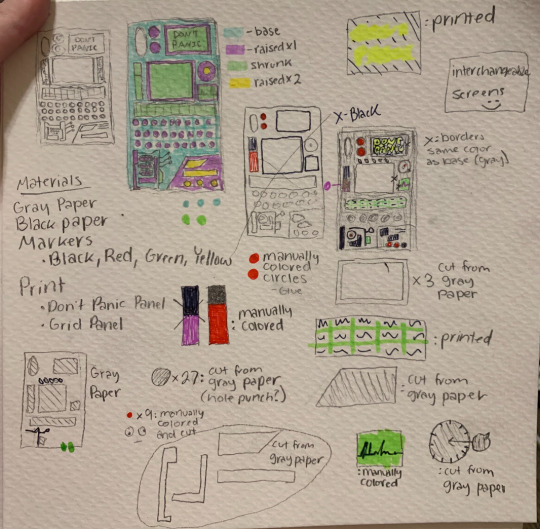 DON'T
PANIC
DON'T
PANIC
- base
- raised x1
- shrunk
- raised x2
: printed
interchangeable
screens
X - Black
X: borders
same color
as base (gray)
Materials
Gray Paper
Black paper
Markers
• Black, Red, Green, Yellow
manually
colored
circles
- Glue
x3 cut from
gray
paper
Print
• Don't Panic Panel
• Grid Panel
: manually
colored
: printed
Gray
Paper
x27: cut from
gray paper
(hole punch?)
cut from
gray paper
x9: manually
colored
and cut
cut from
gray paper
: manually
colored
: cut from
gray paper